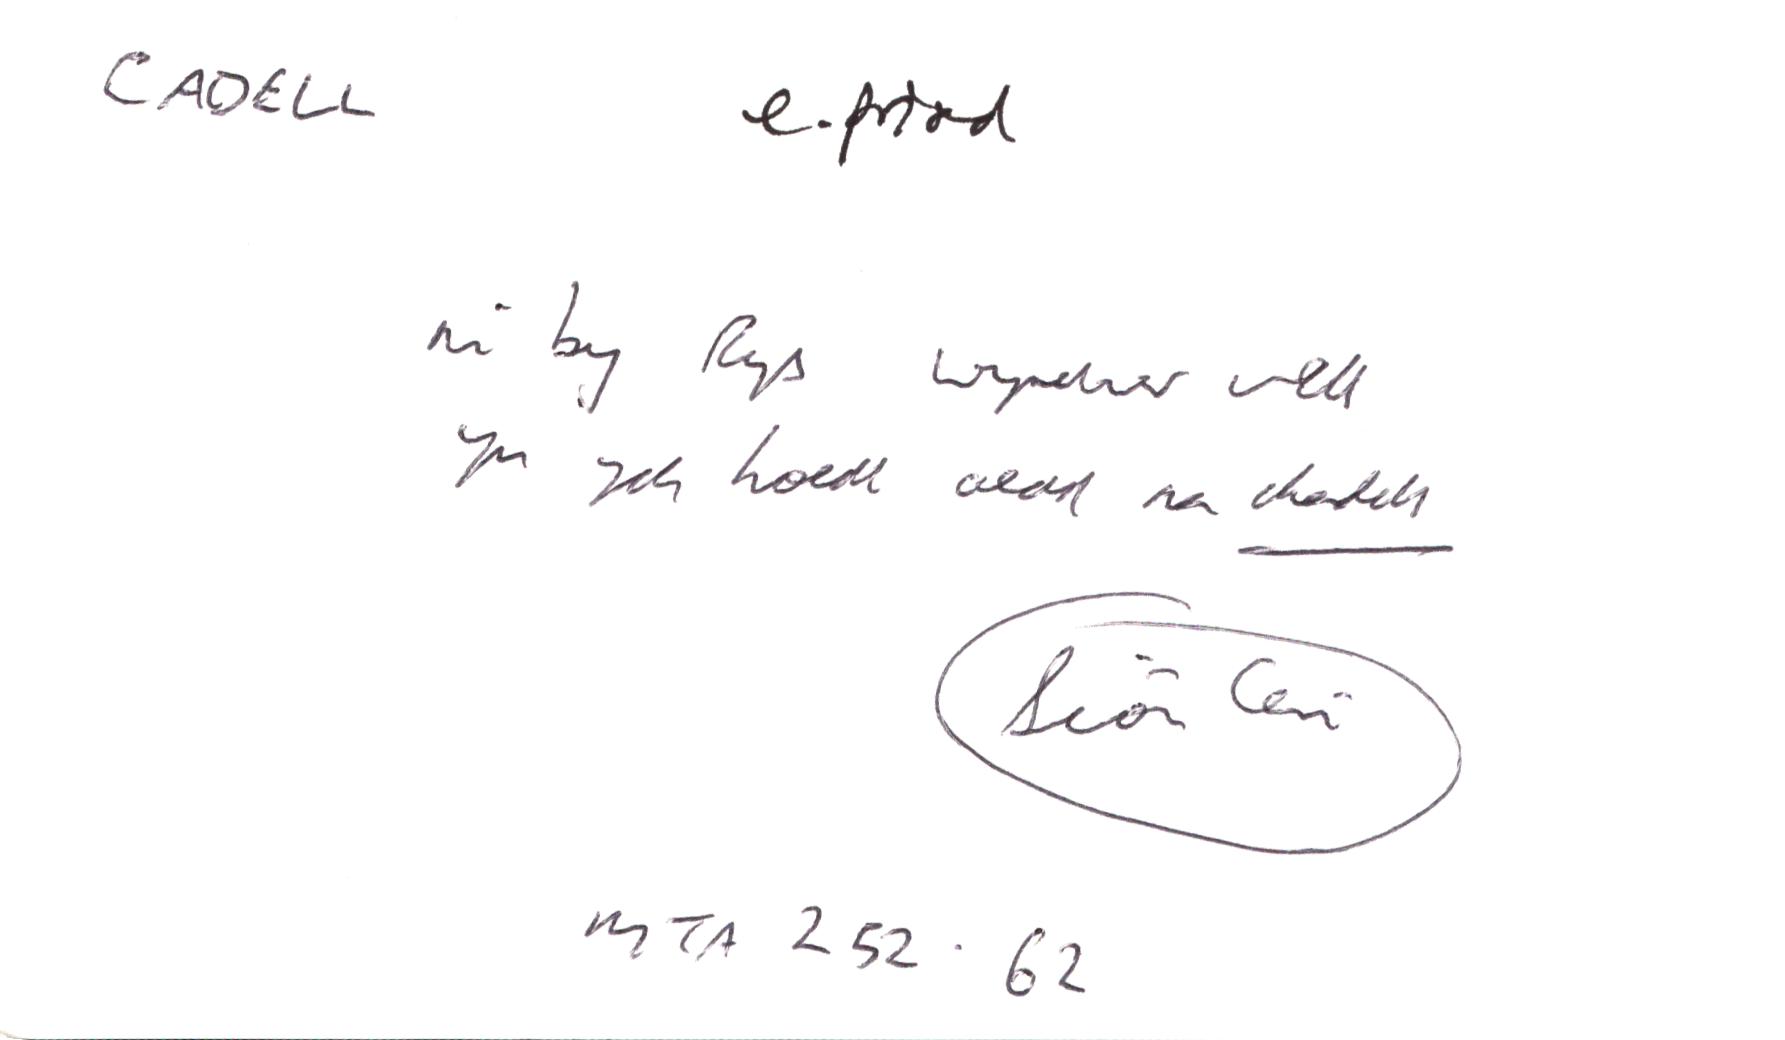 CADELL e. priod
ni by Rys wyneduer well
yn ych hoedl aeddd na chadell
Siôn Ceri
MTA 252. 62